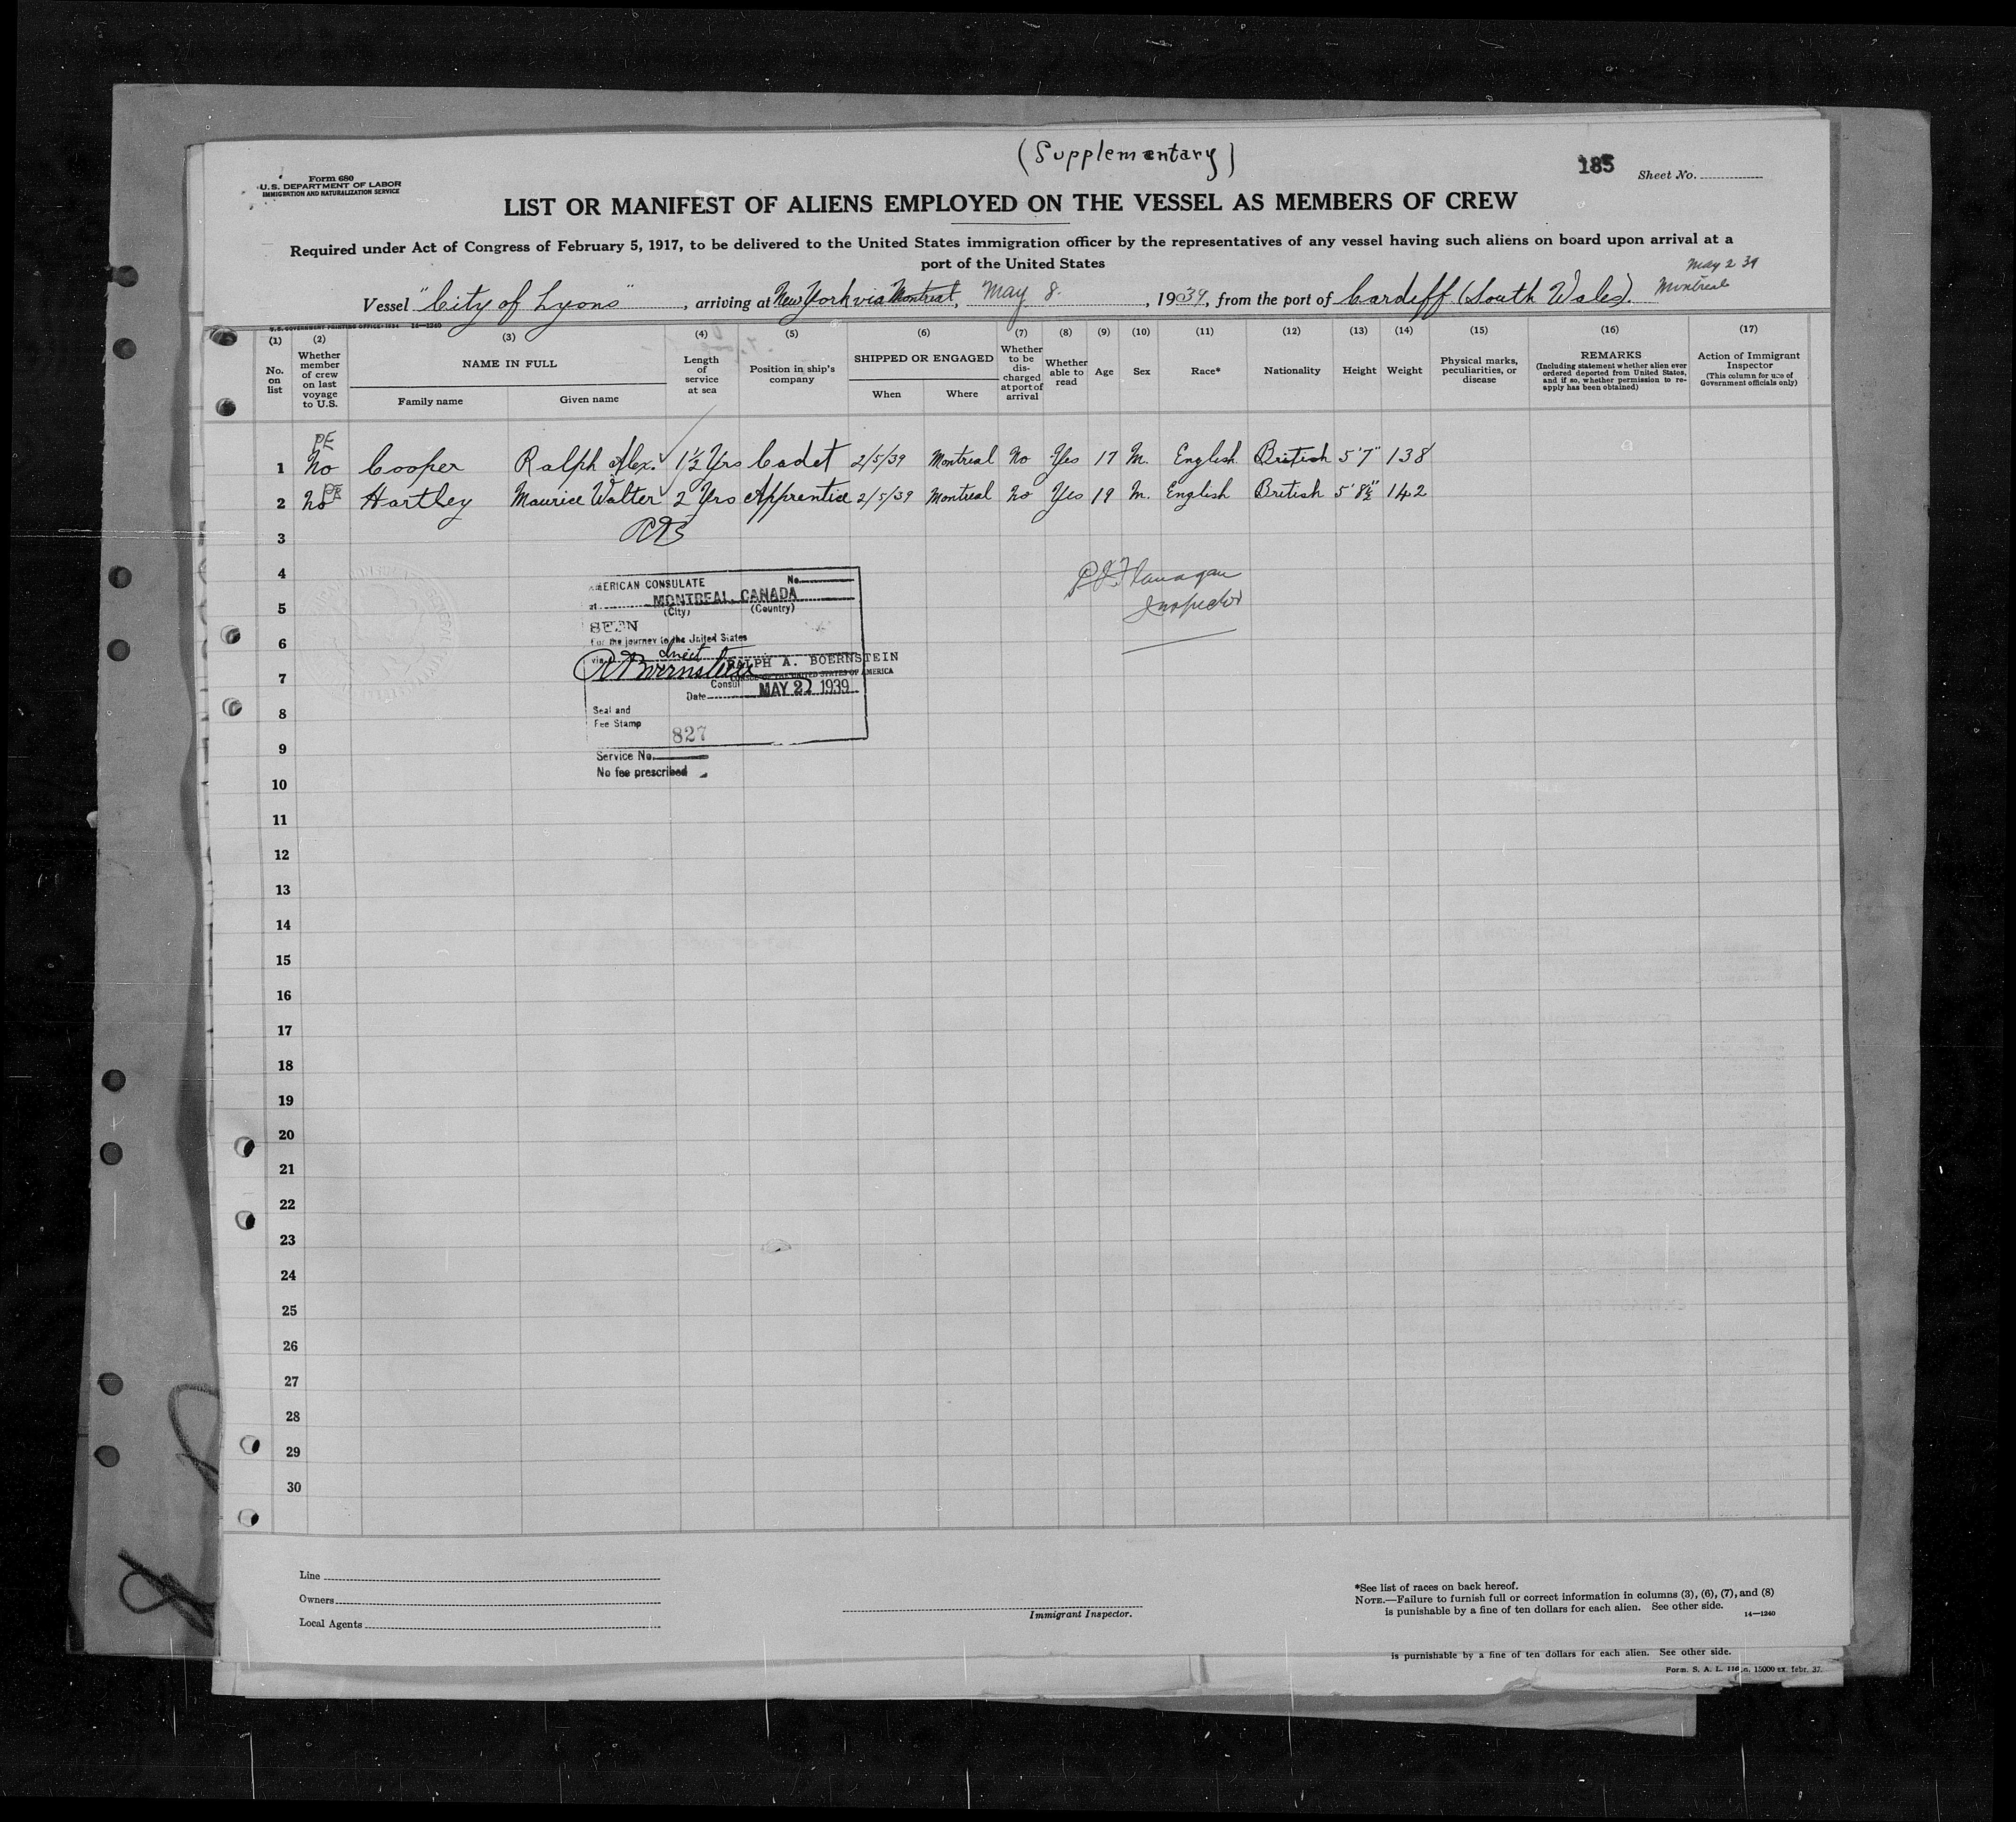 (Supplementary)
185
Sheet No.
Form 680
U.S. DEPARTMENT OF LABOR
IMMIGRATION AND NATURALIZATION SERVICE
LIST OR MANIFEST OF ALIENS EMPLOYED ON THE VESSEL AS MEMBERS OF CREW
Required under Act of Congress of February 5, 1917, to be delivered to the United States immigration officer by the representatives of any vessel having such aliens on board upon arrival at a
port of the United States
May 2 39
Vessel "City of Lyons", arriving at New York via Montreal, May 8, 1939, from the port of Cardiff (South Wales). Montreal
U.S. GOVERNMENT PRINTING OFFICE: 1934 14—1240
(1) (2) (3) (4) (5) (6) (7) (8) (9) (10) (11) (12) (13) (14) (15) (16) (17)
No. on list
Whether member of crew on last voyage to U.S.
NAME IN FULL
Family name
Given name
Length of service at sea
Position in ship's company
SHIPPED OR ENGAGED
When
Where
Whether to be discharged at port of arrival
Whether able to read
Age
Sex
Race*
Nationality
Height
Weight
Physical marks, peculiarities, or disease
REMARKS
(Including statement whether alien ever ordered deported from United States, and if so, whether permission to reapply has been obtained)
Action of Immigrant Inspector
(This column for use of Government officials only)
PE
1 No Cooper Ralph Alex. 1½ Yrs Cadet 2/5/39 Montreal No Yes 17 M. English British 5'7" 138
PE
2 No Hartley Maurice Walter 2 Yrs Apprentice 2/5/39 Montreal No Yes 19 M. English British 5'8½" 142
3
RAB
4
5
6
7
8
9
10
11
12
13
14
15
16
17
18
19
20
21
22
23
24
25
26
27
28
29
30
AMERICAN CONSULATE No.
at MONTREAL, CANADA
(City) (Country)
SEEN
For the journey to the United States
via direct
RALPH A. BOERNSTEIN
CONSUL OF THE UNITED STATES OF AMERICA
Consul
Date MAY 2 1939
Seal and
Fee Stamp
827
Service No.
No fee prescribed
P.J. Flanagan
Inspector
Line
Owners
Local Agents
Immigrant Inspector.
*See list of races on back hereof.
NOTE.—Failure to furnish full or correct information in columns (3), (6), (7), and (8)
is punishable by a fine of ten dollars for each alien. See other side.
14—1240
is purnishable by a fine of ten dollars for each alien. See other side.
Form. S. A. L. 116 n. 15000 ex. febr. 37.